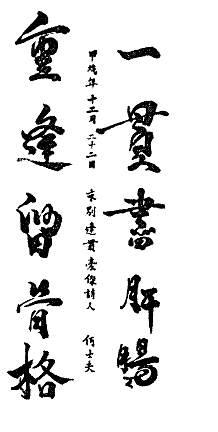 一貫書肝腸
甲戌年十二月二十二日 京別逢貫豪傑詩人 何士夫
重逢留骨格